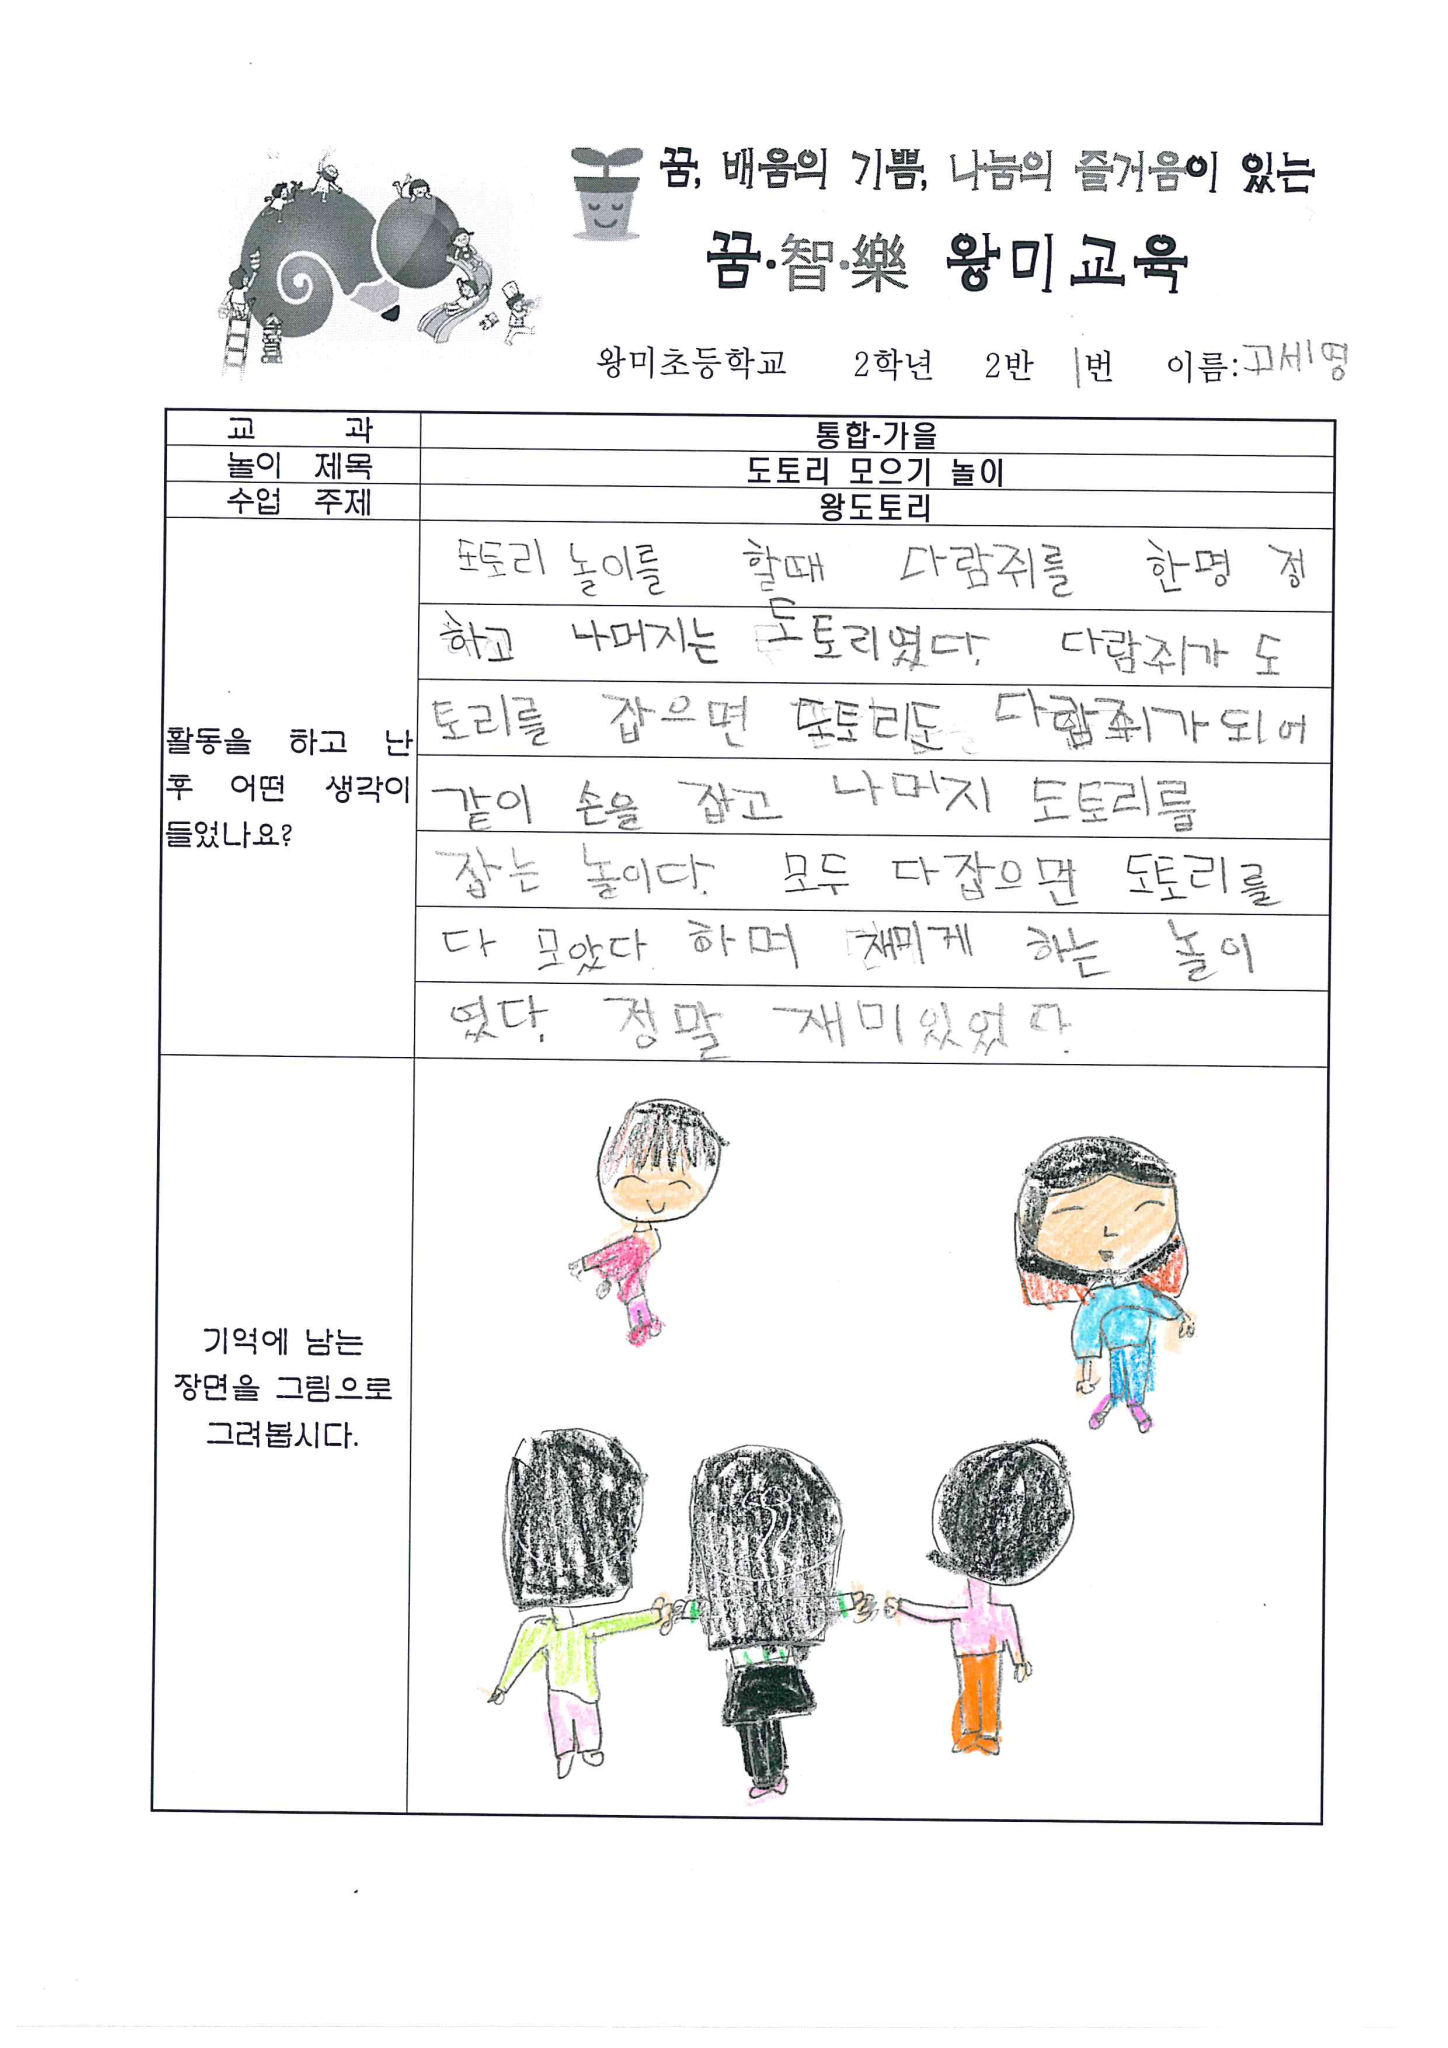 꿈, 배움의 기쁨, 나눔의 즐거움이 있는
꿈·智·樂 왕미교육
왕미초등학교 2학년 2반 1번 이름:고세영
교 과
통합-가을
놀이 제목
도토리 모으기 놀이
수업 주제
왕도토리
활동을 하고 난
후 어떤 생각이
들었나요?
도토리 놀이를 할때 다람쥐를 한명 정
하고 나머지는 도토리였다. 다람쥐가 도
토리를 잡으면 도토리도 다람쥐가되어
같이 손을 잡고 나머지 도토리를
잡는 놀이다. 모두 다잡으면 도토리를
다 모았다 하며 재미게 하는 놀이
였다. 정말 재미있었다.
기억에 남는
장면을 그림으로
그려봅시다.